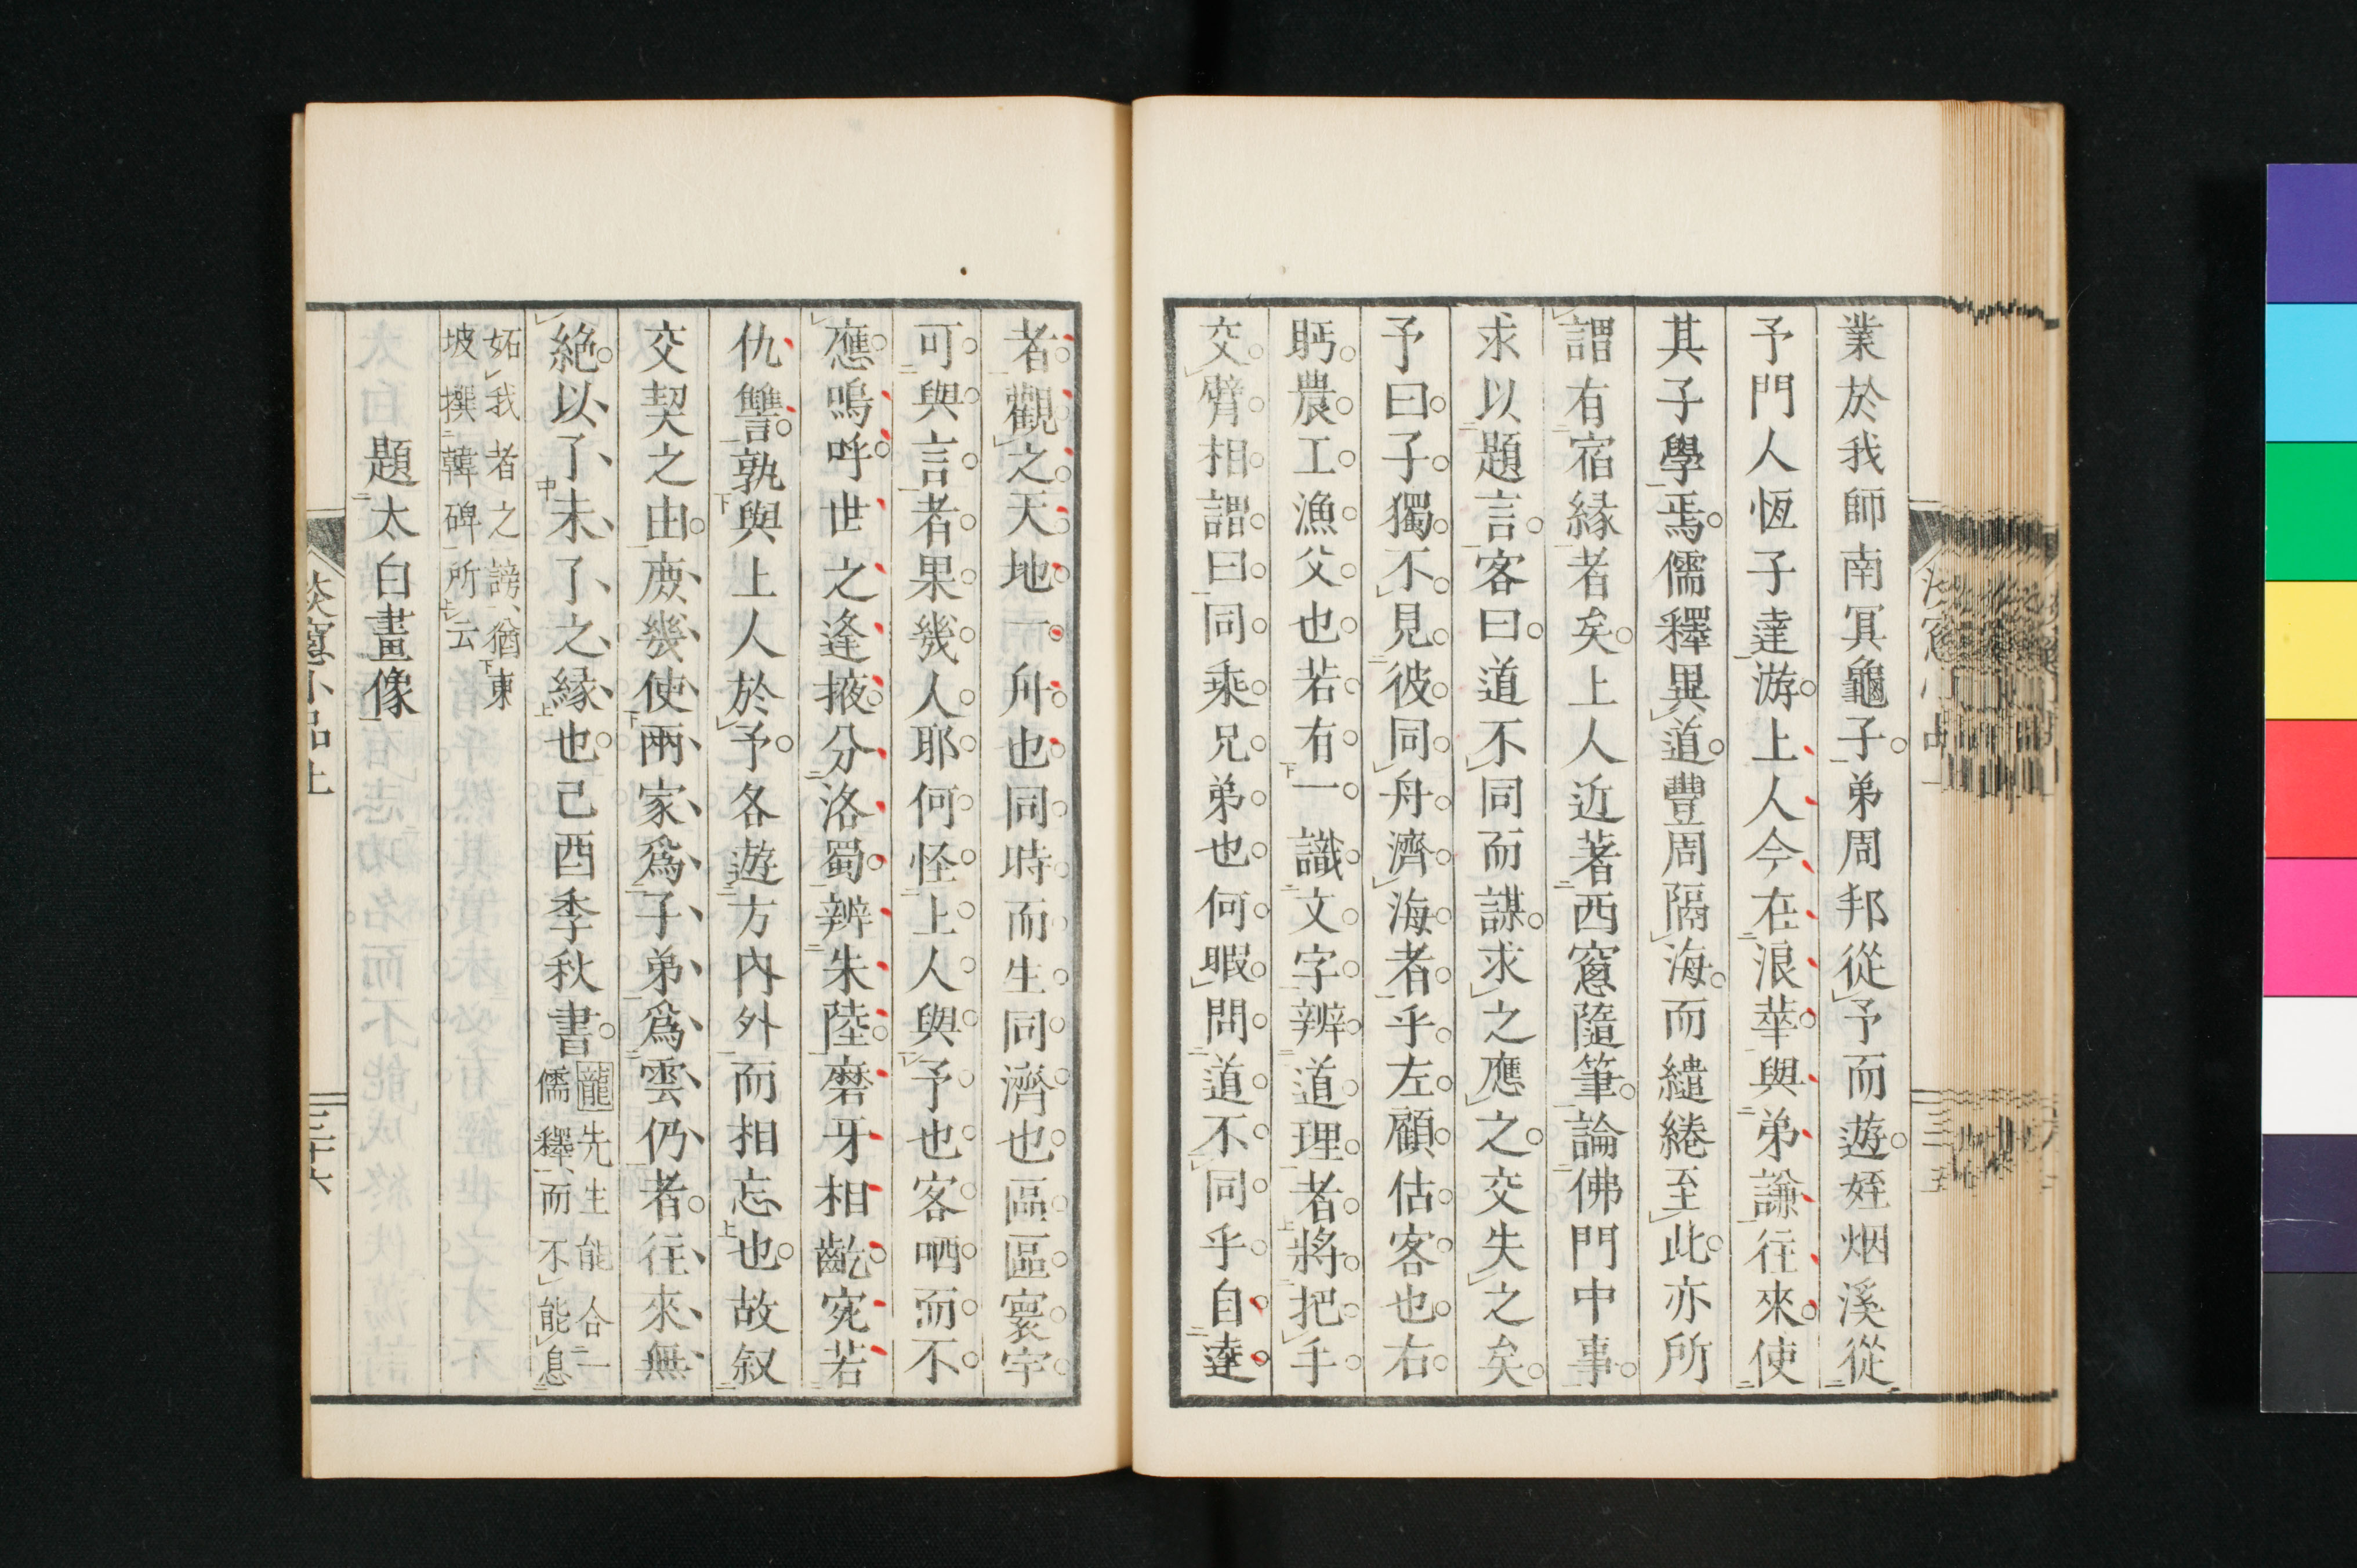 業於我師南冥龜子弟周邦從予而遊姪烟溪從
予門人恆子達游上人今在浪華與弟謙往來使
其子學焉儒釋異道豐周隔海而繾綣至此亦所
謂有宿緣者矣上人近著西窻隨筆論佛門中事
求以題言客曰道不同而謀求之應之交失之矣
予曰子獨不見彼同舟濟海者乎左顧估客也右
眄農工漁父也若有一識文字辨道理者將把手
交臂相謂曰同乘兄弟也何暇問道不同乎自達
者觀之天地一舟也同時而生同濟也區區寰宇
可與言者果幾人耶何怪上人與予也客哂而不
應嗚呼世之逢掖分洛蜀辨朱陸磨牙相齕宛若
仇讐孰與上人於予各遊方內外而相忘也故叙
交契之由庶幾使兩家爲子弟爲雲仍者往來無
絶以了未了之緣也己酉季秋書
龍先生能合一
儒釋而不能息
妬我者之謗猶東
坡撰韓碑所云
題太白畫像
小品上
三十六